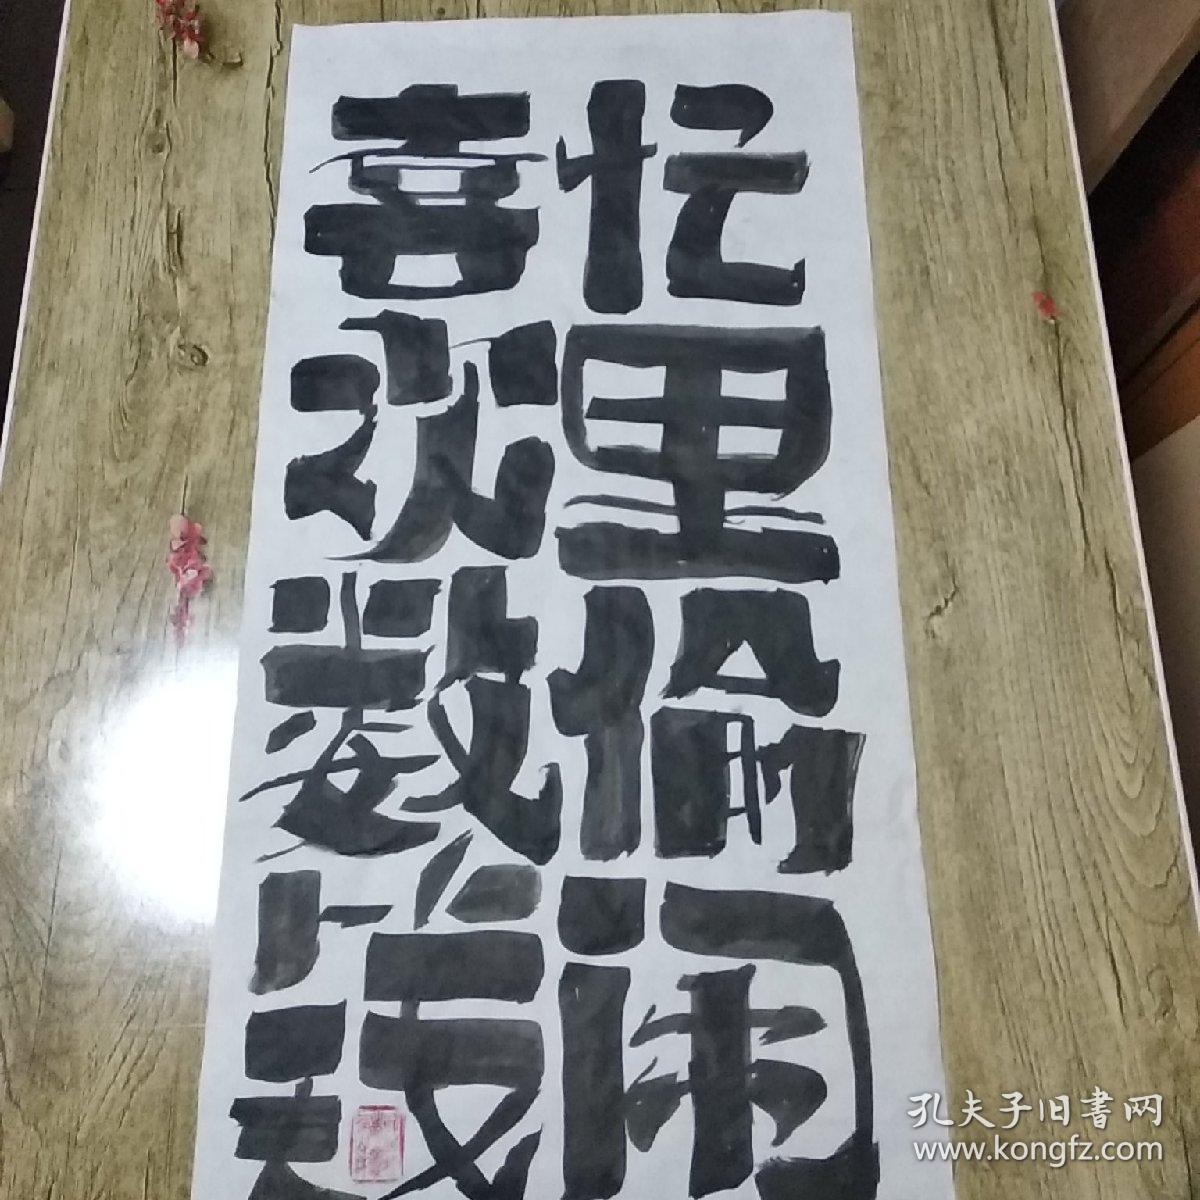 忙里偷闲
喜欢数钱
孔夫子旧書网
www.kongfz.com